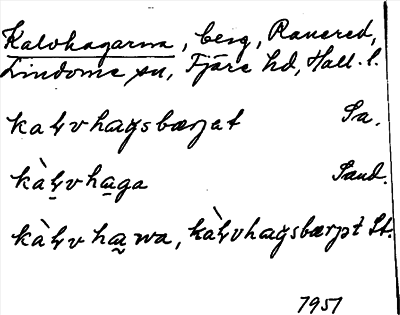 Kalvhagarna, berg, Ranered,
Lindome sn, Fjäre hd, Hall. l.
kaⱡvhaγsbærjat Sa.
kàⱡvha̱ga Sand.
kàⱡvha̰wa, kàⱡvhaγsbærjət St.
1951